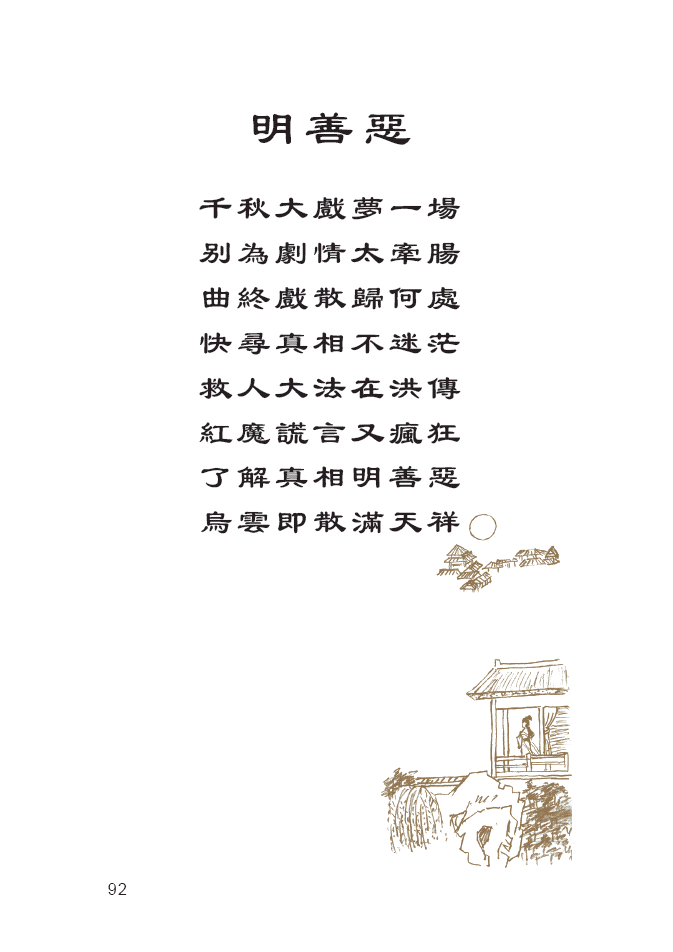 明善惡
千秋大戲夢一場
別為劇情太牽腸
曲終戲散歸何處
快尋真相不迷茫
救人大法在洪傳
紅魔謊言又瘋狂
了解真相明善惡
烏雲即散滿天祥
92